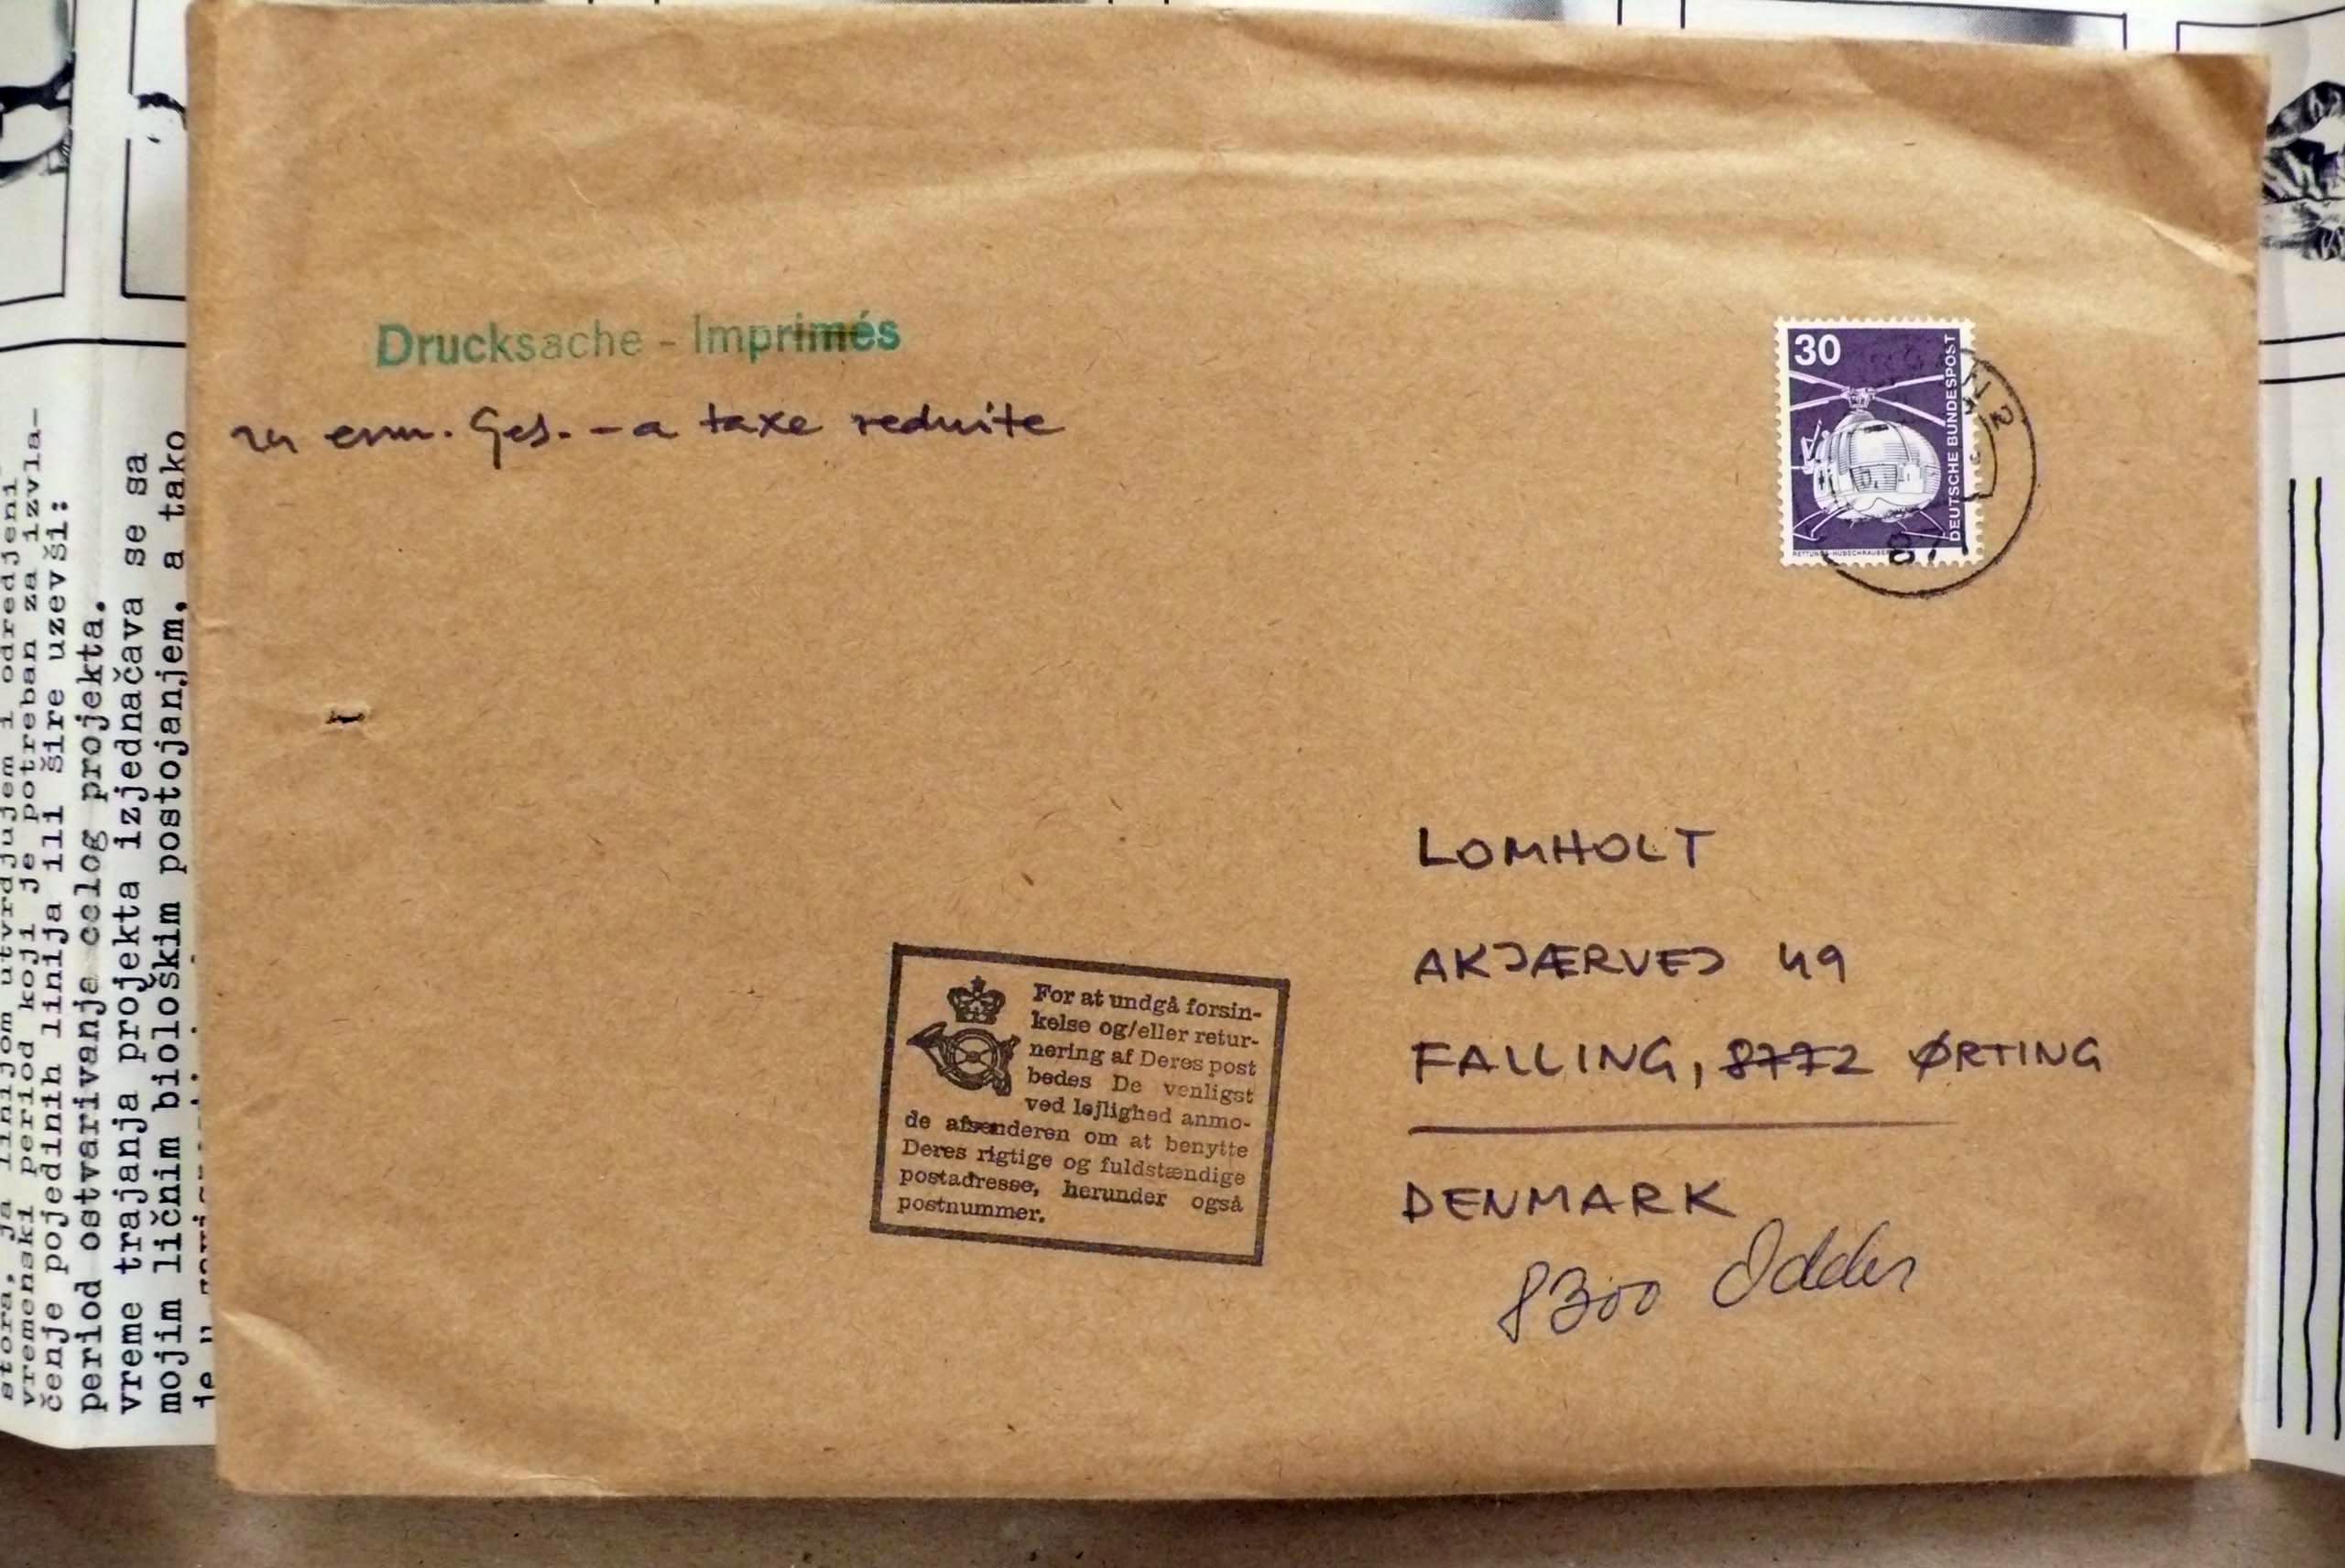 Drucksache - Imprimés
zu erm. Ges. - a taxe reduite
30
DEUTSCHE BUNDESPOST
RETTUNGS-HUBSCHRAUBER
LOMHOLT
AKJÆRVEJ 49
FALLING, 8772 ØRTING
DENMARK
8300 Odder
For at undgå forsin-
kelse og/eller retur-
nering af Deres post
bedes De venligst
ved lejlighed anmo-
de afsenderen om at benytte
Deres rigtige og fuldstændige
postadresse, herunder også
postnummer.
vremenski period koji je potreban za izvla-
čenje pojedinih linija ili šire uzevši:
period ostvarivanja celog projekta.
vreme trajanja projekta izjednačava se sa
mojim ličnim biološkim postojanjem, a tako